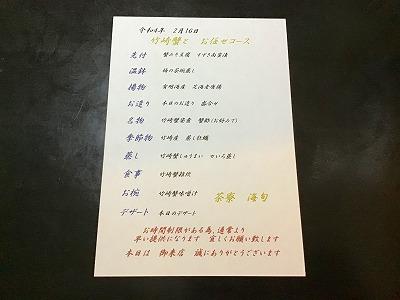 令和4年 2月16日
竹崎蟹と お任せコース
先付 蟹みそ豆腐 すずき南蛮漬
温鉢 蛤の茶碗蒸し
揚物 有明海産 芝海老唐揚
お造り 本日のお造り 盛合せ
名物 竹崎蟹姿煮 蟹酢(お好みで)
季節物 竹崎産 蒸し牡蠣
蒸し 竹崎蟹しゅうまい せいろ蒸し
食事 竹崎蟹雑炊
お椀 竹崎蟹味噌汁
茶寮 海旬
デザート 本日のデザート
お時間制限がある為、通常より
早い提供になります 宜しくお願い致します
本日は 御来店 誠にありがとうございます